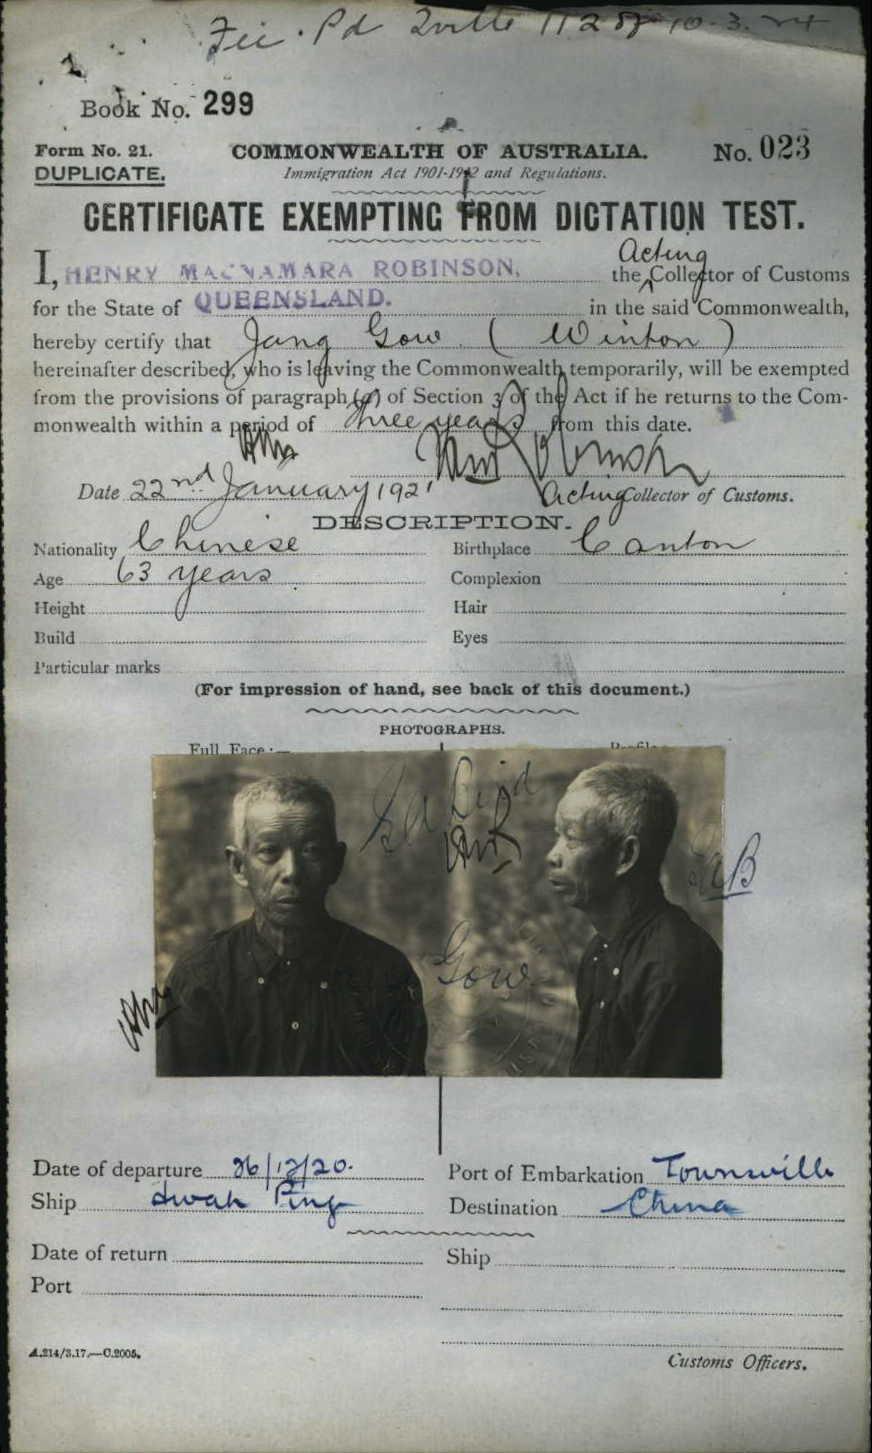 Fee Pd
Book No. 299
Form No. 21. COMMONWEALTH OF AUSTRALIA. No. 023
DUPLICATE. Immigration Act 1901-1912 and Regulations.
CERTIFICATE EXEMPTING FROM DICTATION TEST.
Acting
I, HENRY MACNAMARA ROBINSON, the Collector of Customs
for the State of QUEENSLAND. in the said Commonwealth,
hereby certify that Jang Gow (Winton)
hereinafter described, who is leaving the Commonwealth temporarily, will be exempted
from the provisions of paragraph (a) of Section 3 of the Act if he returns to the Com-
monwealth within a period of Three years from this date.
Date 22nd January 1921 Acting Collector of Customs.
DESCRIPTION.
Nationality Chinese Birthplace Canton
Age 63 years Complexion
Height Hair
Build Eyes
Particular marks
(For impression of hand, see back of this document.)
PHOTOGRAPHS.
Full Face:— Profile
Gow
Date of departure 26/12/20. Port of Embarkation Townsville
Ship Hwah Ping Destination China
Date of return Ship
Port
A.214/3.17.—C.2005.
Customs Officers.